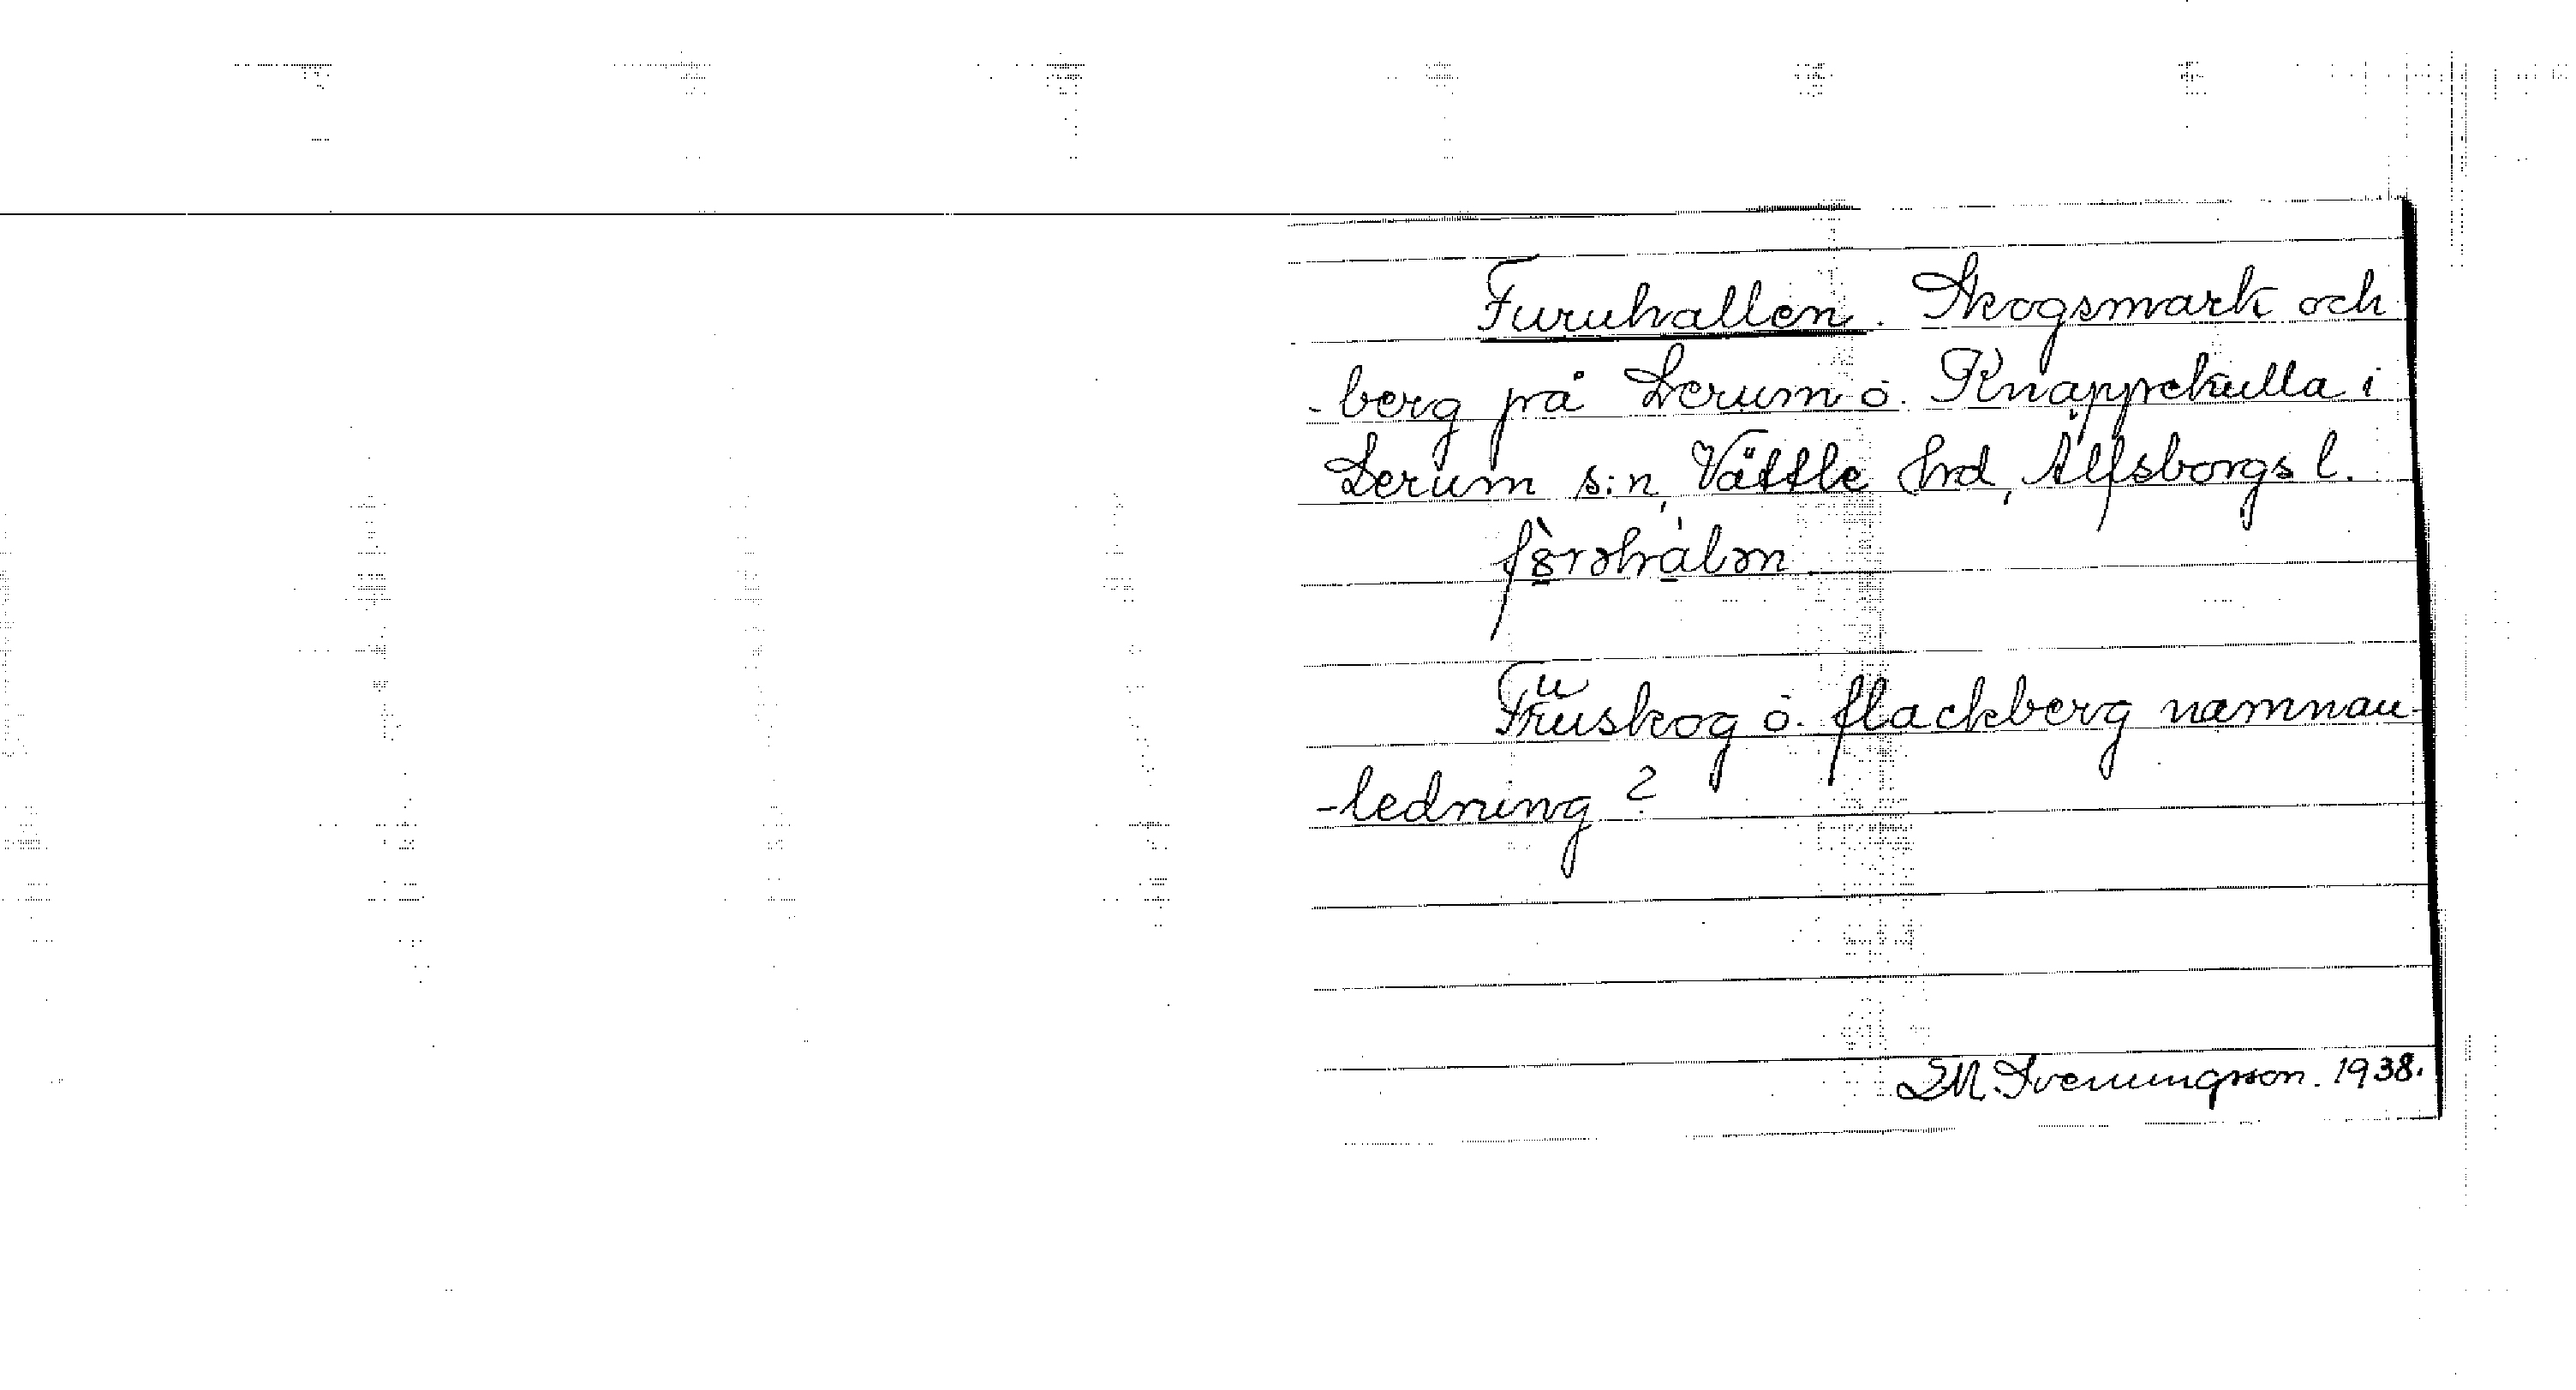 Furuhallen. Skogsmark och
-berg på Lerum o. Knappekulla i
Lerum s:n, Vättle hrd, Älfsborgs l.
Furuskog o. flackberg namnan-
-ledning?
I.M. Svenungsson. 1938.